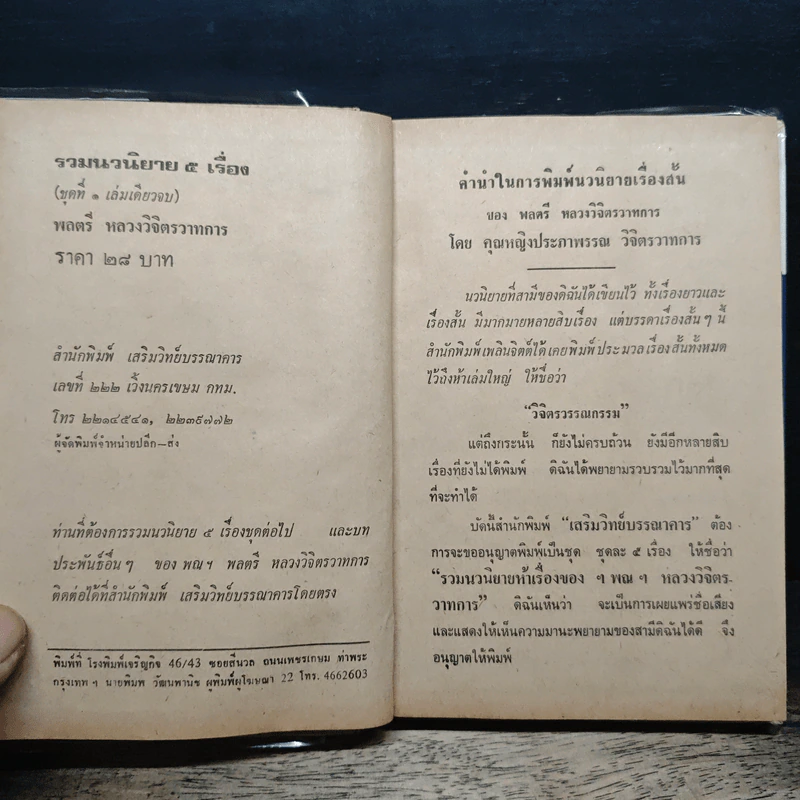 รวมนวนิยาย ๕ เรื่อง
(ชุดที่ ๑ เล่มเดียวจบ)
พลตรี หลวงวิจิตรวาทการ
ราคา ๒๘ บาท
สำนักพิมพ์ เสริมวิทย์บรรณาคาร
เลขที่ ๒๒๒ เวิ้งนครเขษม กทม.
โทร ๒๒๑๔๕๔๑, ๒๒๓๙๗๗๒
ผู้จัดพิมพ์จำหน่ายปลีก—ส่ง
ท่านที่ต้องการรวมนวนิยาย ๕ เรื่องชุดต่อไป และบท
ประพันธ์อื่นๆ ของ พณฯ พลตรี หลวงวิจิตรวาทการ
ติดต่อได้ที่สำนักพิมพ์ เสริมวิทย์บรรณาคารโดยตรง
พิมพ์ที่ โรงพิมพ์เจริญกิจ 46/43 ซอยสีนวล ถนนเพชรเกษม ท่าพระ
กรุงเทพฯ นายพิมพ วัฒนพานิช ผู้พิมพ์ผู้โฆษณา 22 โทร. 4662603
คำนำในการพิมพ์นวนิยายเรื่องสั้น
ของ พลตรี หลวงวิจิตรวาทการ
โดย คุณหญิงประภาพรรณ วิจิตรวาทการ
นวนิยายที่สามีของดิฉันได้เขียนไว้ ทั้งเรื่องยาวและ
เรื่องสั้น มีมากมายหลายสิบเรื่อง แต่บรรดาเรื่องสั้นๆ นี้
สำนักพิมพ์เพลินจิตต์ได้เคยพิมพ์ประมวลเรื่องสั้นทั้งหมด
ไว้ถึงห้าเล่มใหญ่ ให้ชื่อว่า
“วิจิตรวรรณกรรม”
แต่ถึงกระนั้น ก็ยังไม่ครบถ้วน ยังมีอีกหลายสิบ
เรื่องที่ยังไม่ได้พิมพ์ ดิฉันได้พยายามรวบรวมไว้มากที่สุด
ที่จะทำได้
บัดนี้สำนักพิมพ์ “เสริมวิทย์บรรณาคาร” ต้อง
การจะขออนุญาตพิมพ์เป็นชุด ชุดละ ๕ เรื่อง ให้ชื่อว่า
“รวมนวนิยายห้าเรื่องของ ฯพณฯ หลวงวิจิตร-
วาทการ” ดิฉันเห็นว่า จะเป็นการเผยแพร่ชื่อเสียง
และแสดงให้เห็นความมานะพยายามของสามีดิฉันได้ดี จึง
อนุญาตให้พิมพ์